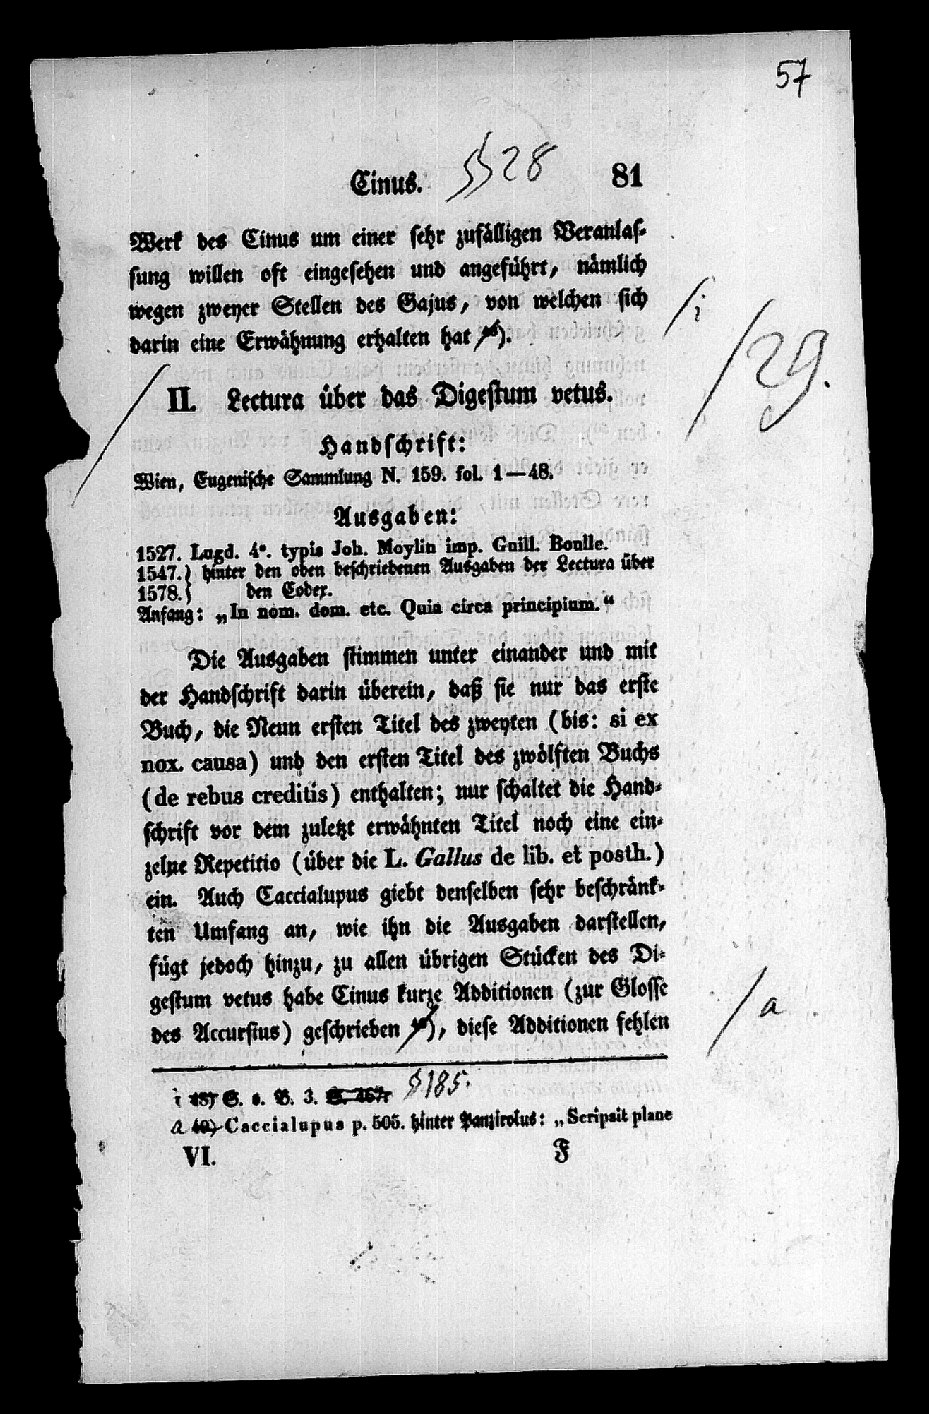 57
Cinus. §§ 28 81
Werk des Cinus um einer sehr zufälligen Veranlas-
sung willen oft eingesehen und angeführt, nämlich
wegen zweyer Stellen des Gajus, von welchen sich
darin eine Erwähnung erhalten hat ). / i
/ 29.
II. Lectura über das Digestum vetus.
Handschrift:
Wien, Eugenische Sammlung N. 159. fol. 1—48.
Ausgaben:
1527. Lugd. 4°. typis Joh. Moylin imp. Guill. Boulle.
1547.} hinter den oben beschriebenen Ausgaben der Lectura über
1578.} den Codex.
Anfang: „In nom. dom. etc. Quia circa principium.“
Die Ausgaben stimmen unter einander und mit
der Handschrift darin überein, daß sie nur das erste
Buch, die Neun ersten Titel des zweyten (bis: si ex
nox. causa) und den ersten Titel des zwölften Buchs
(de rebus creditis) enthalten; nur schaltet die Hand-
schrift vor dem zuletzt erwähnten Titel noch eine ein-
zelne Repetitio (über die L. Gallus de lib. et posth.)
ein. Auch Caccialupus giebt denselben sehr beschränk-
ten Umfang an, wie ihn die Ausgaben darstellen,
fügt jedoch hinzu, zu allen übrigen Stücken des Di-
gestum vetus habe Cinus kurze Additionen (zur Glosse
des Accursius) geschrieben ), diese Additionen fehlen / a
i 48) S. o. B. 3. S. 267. § 185.
a 49) Caccialupus p. 505. hinter Panzirolus: „Scripsit plane
VI. F